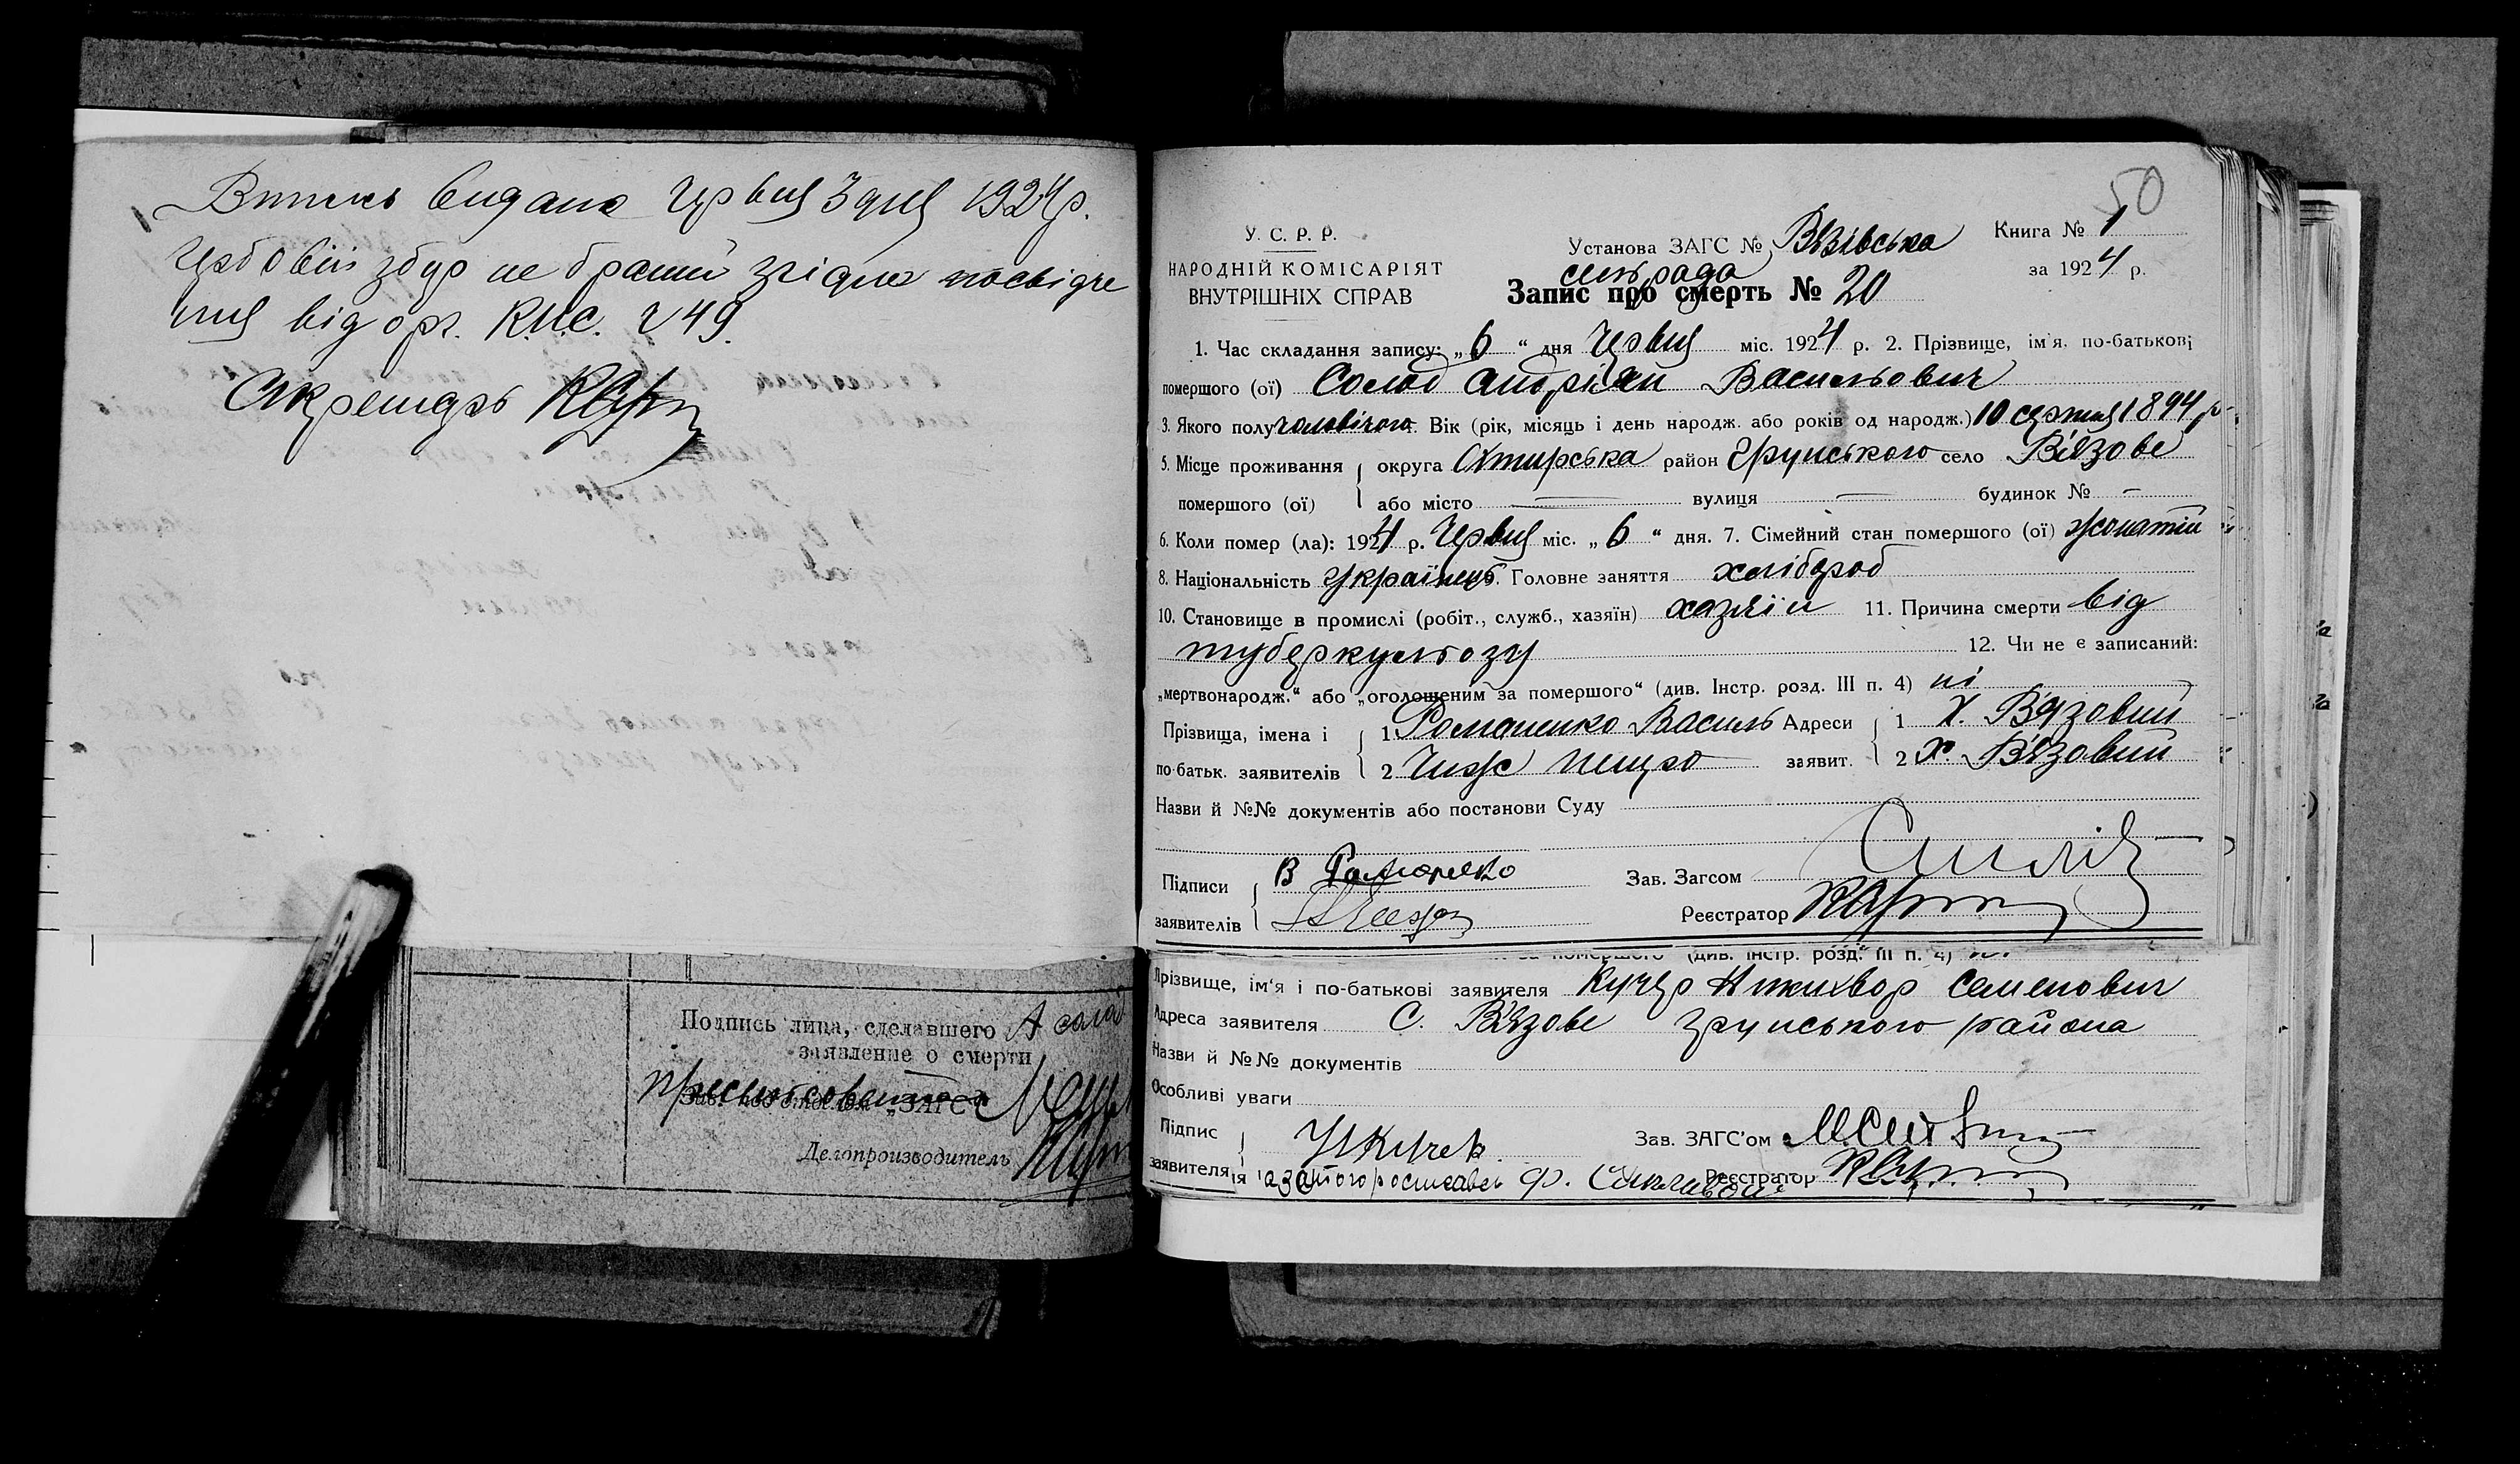 Випись видана Червня 3 дня 1924 р.
Гербовий збір не браний згідно посвідче
ння від орг. К.Н.С. № 49.
Секретарь
Подпись лица, сделавшего А Солод
заявление о смерти
Зав. под'отделом „ЗАГС"
Делопроизводитель
50
У. С. Р. Р.
НАРОДНІЙ КОМІСАРІЯТ
ВНУТРІШНІХ СПРАВ
Установа ЗАГС № Вязівська
сельрада
Книга № 1
за 1924 р.
Запис про смерть № 20
1. Час складання запису: „6" дня Червня міс. 1924 р. 2. Прізвище, ім'я, по-батькові
помершого (ої) Солод Андріян Васильович
3. Якого полу чоловічого 4. Вік (рік, місяць і день народж. або років од народж.) 10 серпня 1894 р.
5. Місце проживання округа Охтирська район Грунського село Вязове
помершого (ої) або місто — вулиця — будинок № —
6. Коли помер (ла): 1924 р. Червня міс. „6" дня. 7. Сімейний стан помершого (ої) жонатий
8. Національність Українець 9. Головне заняття хлібороб
10. Становище в промислі (робіт., служб., хазяїн) хазяїн 11. Причина смерти від
туберкульозу 12. Чи не є записаний:
„мертвонародж." або „оголошеним за помершого" (див. Інстр. розд. III п. 4) ні
Прізвища, імена і 1 Романенко Василь Адреси 1 х. Вязовий
по-батьк. заявителів 2 Чиж Петро заявит. 2 х. Вязовий
Назви й №№ документів або постанови Суду
Підписи В Романенко Зав. Загсом
заявителів Реєстратор
за помершого" (див. Інстр. розд. III п. 4) ні
Прізвище, ім'я і по-батькові заявителя Кучер Никифор Семенович
Адреса заявителя С. Вязове Грунського района
Назви й №№ документів
Особливі уваги
Підпис Н Кучер Зав. ЗАГС'ом
заявителя Реєстратор